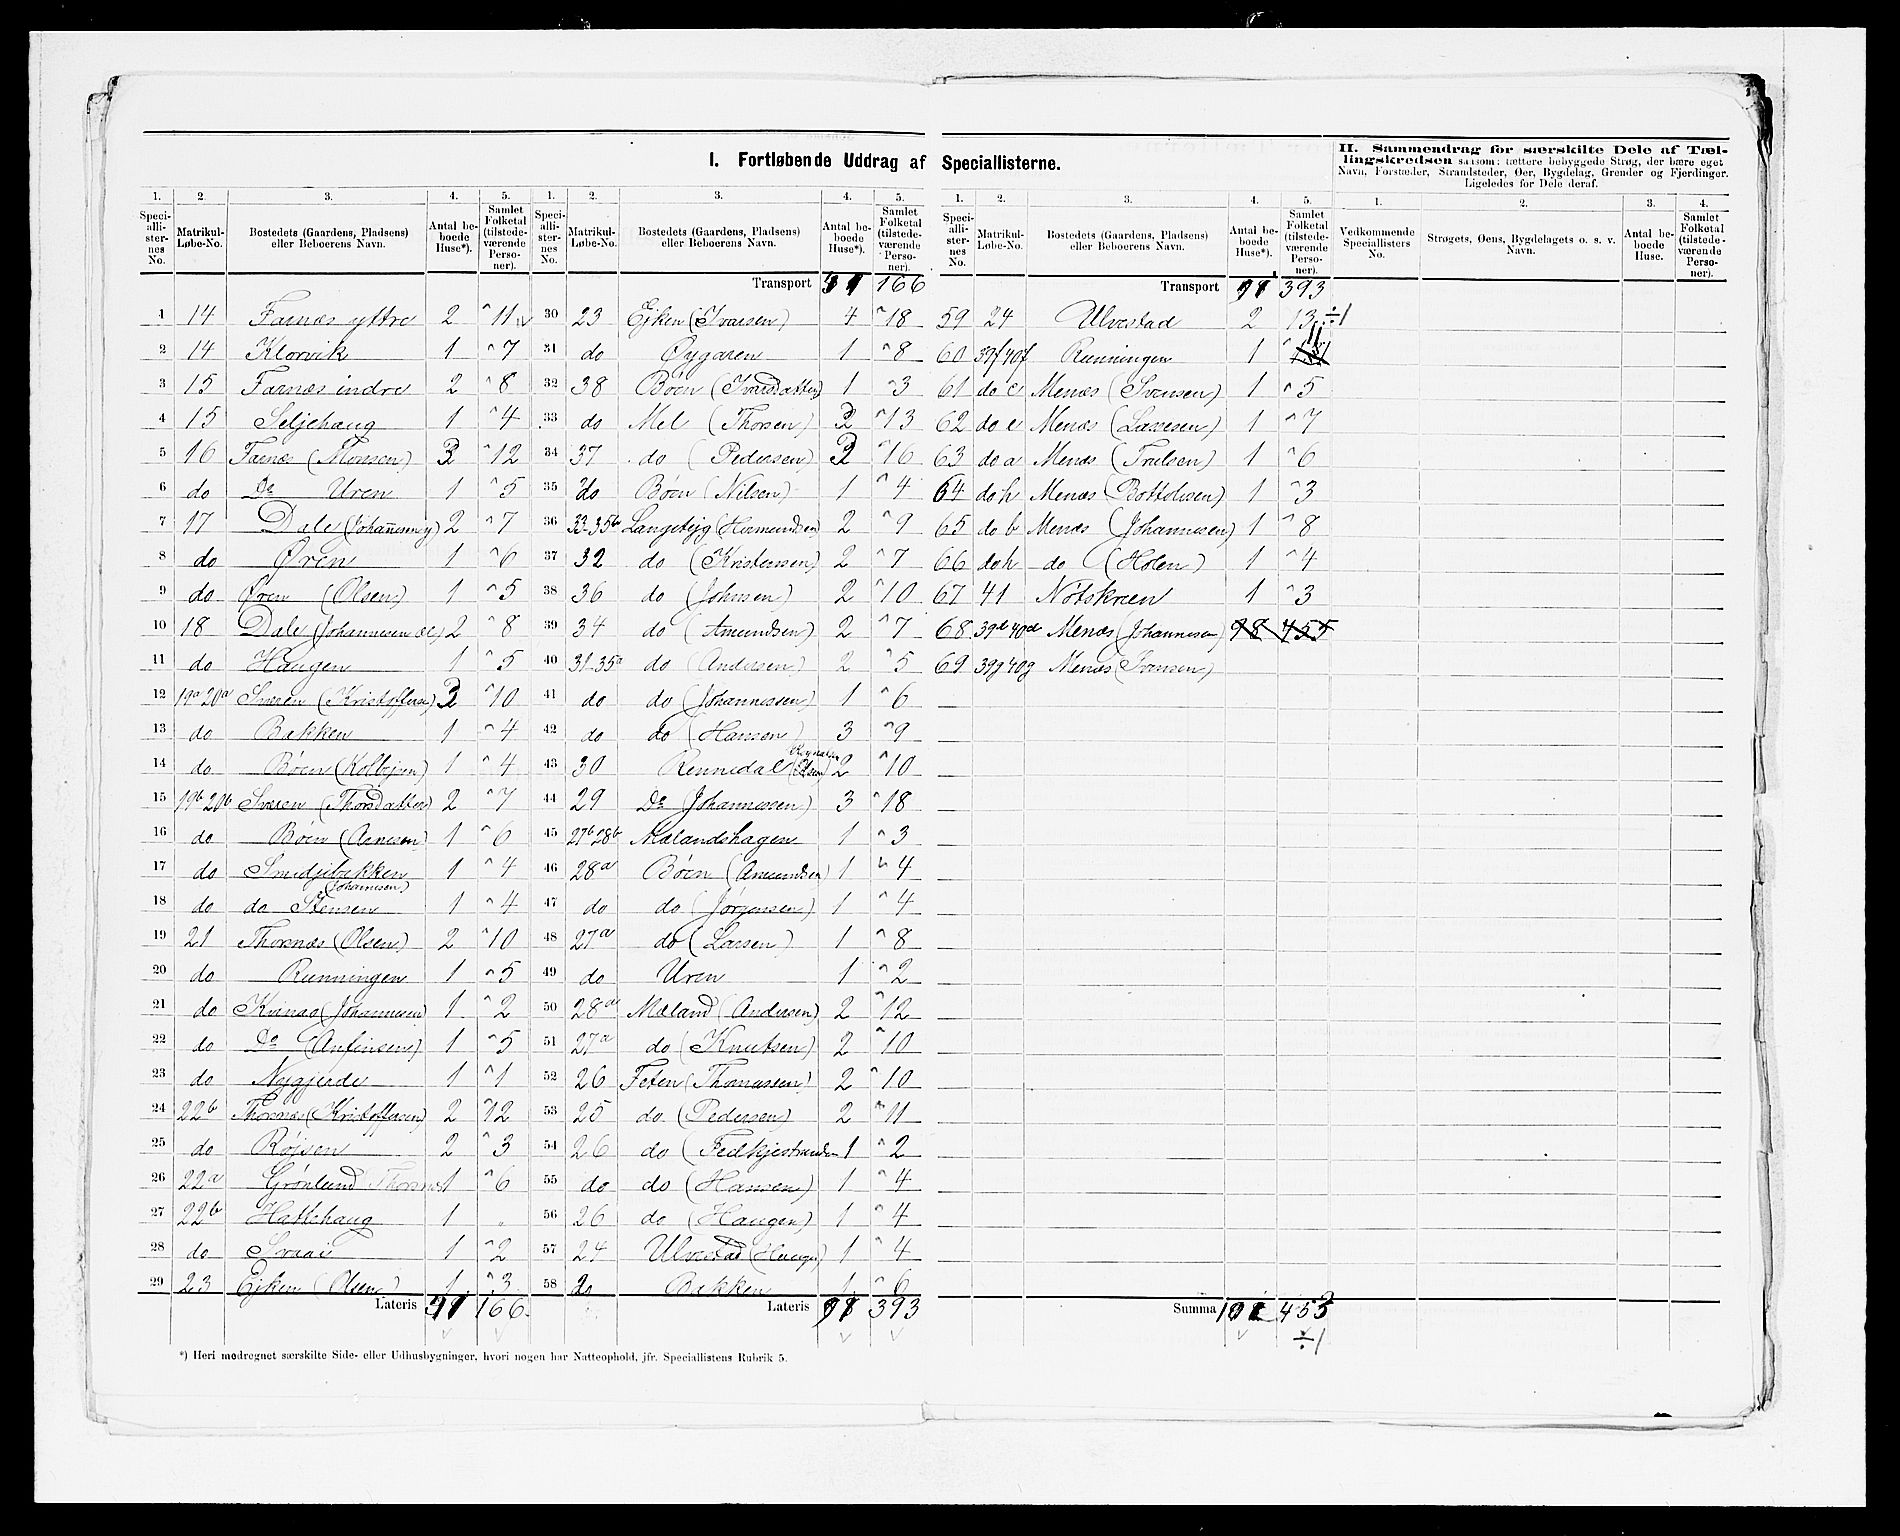 I. Fortløbende Uddrag af Speciallisterne.
II. Sammendrag for særskilte Dele af Tæl-
lingskredsen saasom: tættere bebyggede Strøg, der bære eget
Navn, Forstæder, Strandsteder, Øer, Bygdelag, Grender og Fjerdinger.
Ligeledes for Dele deraf.
1. 2. 3. 4. 5. 1. 2. 3. 4. 5. 1. 2. 3. 4. 5. 1. 2. 3. 4.
Speci-alli-ster-nes No. Matrikul-Løbe-No. Bostedets (Gaardens, Pladsens) eller Beboerens Navn. Antal be-boede Huse*). Samlet Folketal (tilstede-værende Perso-ner).
Speci-alli-ster-nes No. Matrikul-Løbe-No. Bostedets (Gaardens, Pladsens) eller Beboerens Navn. Antal be-boede Huse*). Samlet Folketal (tilstede-værende Perso-ner).
Speci-alli-ster-nes No. Matrikul-Løbe-No. Bostedets (Gaardens, Pladsens) eller Beboerens Navn. Antal be-boede Huse*). Samlet Folketal (tilstede-værende Perso-ner).
Vedkommende Speciallisters No. Strøgets, Øens, Bygdelagets o. s. v. Navn. Antal be-boede Huse. Samlet Folketal (tilstede-værende Perso-ner).
Transport 166
Transport 393
1 14 Farnæs yttre 2 11 30 23 Ejken (Ivarsen) 4 18 59 24 Ulvestad 2 13 ÷1
2 14 Klorvik 1 7 31 do Øygaren 1 8 60 39f 40f Runningen 1 11
3 15 Farnæs indre 2 8 32 38 Bøen (Ivarsdatter) 1 3 61 do c Menæs (Svensen) 1 5
4 15 Seljehaug 1 4 33 do Mel (Thorsen) 2 13 62 do e Menæs (Lassesen) 1 7
5 16 Farnæs (Monsen) 3 12 34 37 do (Pedersen) 2 16 63 do a Menæs (Trulsen) 1 6
6 do Do Uren 1 5 35 do Bøen (Nilsen) 1 4 64 do h Menæs (Bottolvsen) 1 3
7 17 Dale (Johannesen y) 2 7 36 33-35b Langeteig (Hermundsen) 2 9 65 do b Menæs (Johannesen) 1 8
8 do Øren 1 6 37 32 do (Kristensen) 2 7 66 do h do (Holen) 1 4
9 do Øren (Olsen) 1 5 38 36 do (Johnsen) 2 10 67 41 Nötskreen 1 3
10 18 Dale (Johannesen æl) 2 8 39 34 do (Amundsen) 2 7 68 39d 40d Menæs (Johannesen) 98 455
11 do Haugen 1 5 40 31-35a do (Andersen) 2 5 69 39g 40g Menæs (Svensen)
12 19a 20a Sværen (Kristoffersen) 10 41 do do (Johannessen) 1 6
13 do Bakken 1 4 42 do do (Hansen) 3 9
14 do Bøen (Kolbejsen) 1 4 43 30 Rennedal (Olsen) 2 10
15 19b 20b Sværen (Thorsdatter) 2 7 44 29 Do Johannessen) 3 18
16 do Bøen (Arnesen) 1 6 45 27b 28b Mælandshagen 1 3
17 do Smedjebakken 1 4 46 28a Bøen (Amundsen) 1 4
(Johannesen)
18 do do Stensen 1 4 47 do do (Jørgensen) 1 4
19 21 Thornæs (Olsen) 2 10 48 27a do (Larsen) 1 8
20 do Runningen 1 5 49 do Uren 1 2
21 do (Johannesen) 1 2 50 28a Mæland (Andersen) 2 12
22 do Do (Anfinsen) 1 5 51 27a do (Knutsen) 2 10
23 do Nygjerde 1 1 52 26 Feten (Thomassen) 2 10
24 22b Thornæs (Kristoffersen) 2 12 53 25 do (Pedersen) 2 11
25 do Røjsen 2 3 54 26 do (Fedkjestranden 1 2
26 22a Grönlund Thornæs 1 6 55 do do (Hansen) 1 4
27 22b Hattehaug 1 56 26 do (Haugen) 1 4
28 do Svaai 1 2 57 24 Ulvestad (Haugen) 1 4
29 23 Ejken (Olsen) 1 3 58 do Bakken 1 6
Lateris 166 Lateris 393 Summa 453
÷1
*) Heri medregnet særskilte Side- eller Udhusbygninger, hvori nogen har Natteophold, jfr. Speciallistens Rubrik 5.